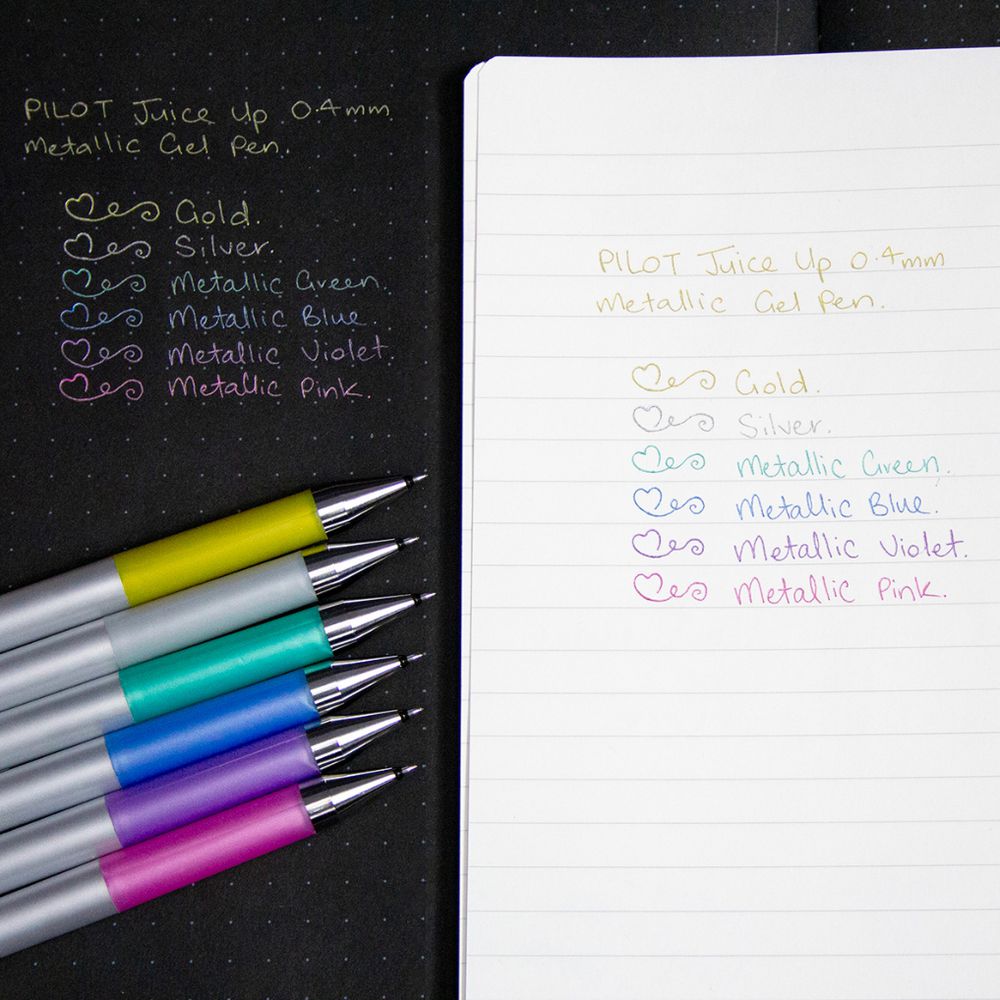 PILOT Juice Up 0.4mm
Metallic Gel Pen.
Gold.
Silver.
Metallic Green.
Metallic Blue.
Metallic Violet.
Metallic Pink.
PILOT Juice Up 0.4mm
Metallic Gel Pen.
Gold.
Silver.
Metallic Green.
Metallic Blue.
Metallic Violet.
Metallic Pink.